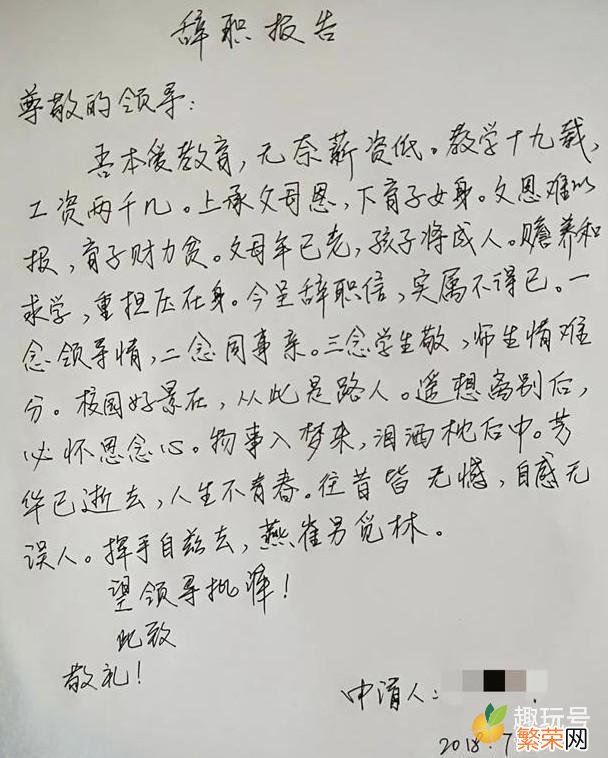 辞职报告
尊敬的领导:
吾本爱教育,无奈薪资低。教学十九载,
工资两千几。上承父母恩,下育子女身。父恩难以
报,育子财力贫。父母年已老,孩子将成人。赡养和
求学,重担压在身。今呈辞职信,实属不得已。一
念领导情,二念同事亲。三念学生敬,师生情难
分。校园好景在,从此是路人。遥想离别后,
必怀思念心。物事入梦来,泪洒枕后中。芳
华已逝去,人生不青春。往昔皆无憾,自感无
误人。挥手自兹去,燕雀另觅林。
望领导批准!
此致
敬礼!
申请人:
2018.7
趣玩号
繁荣网